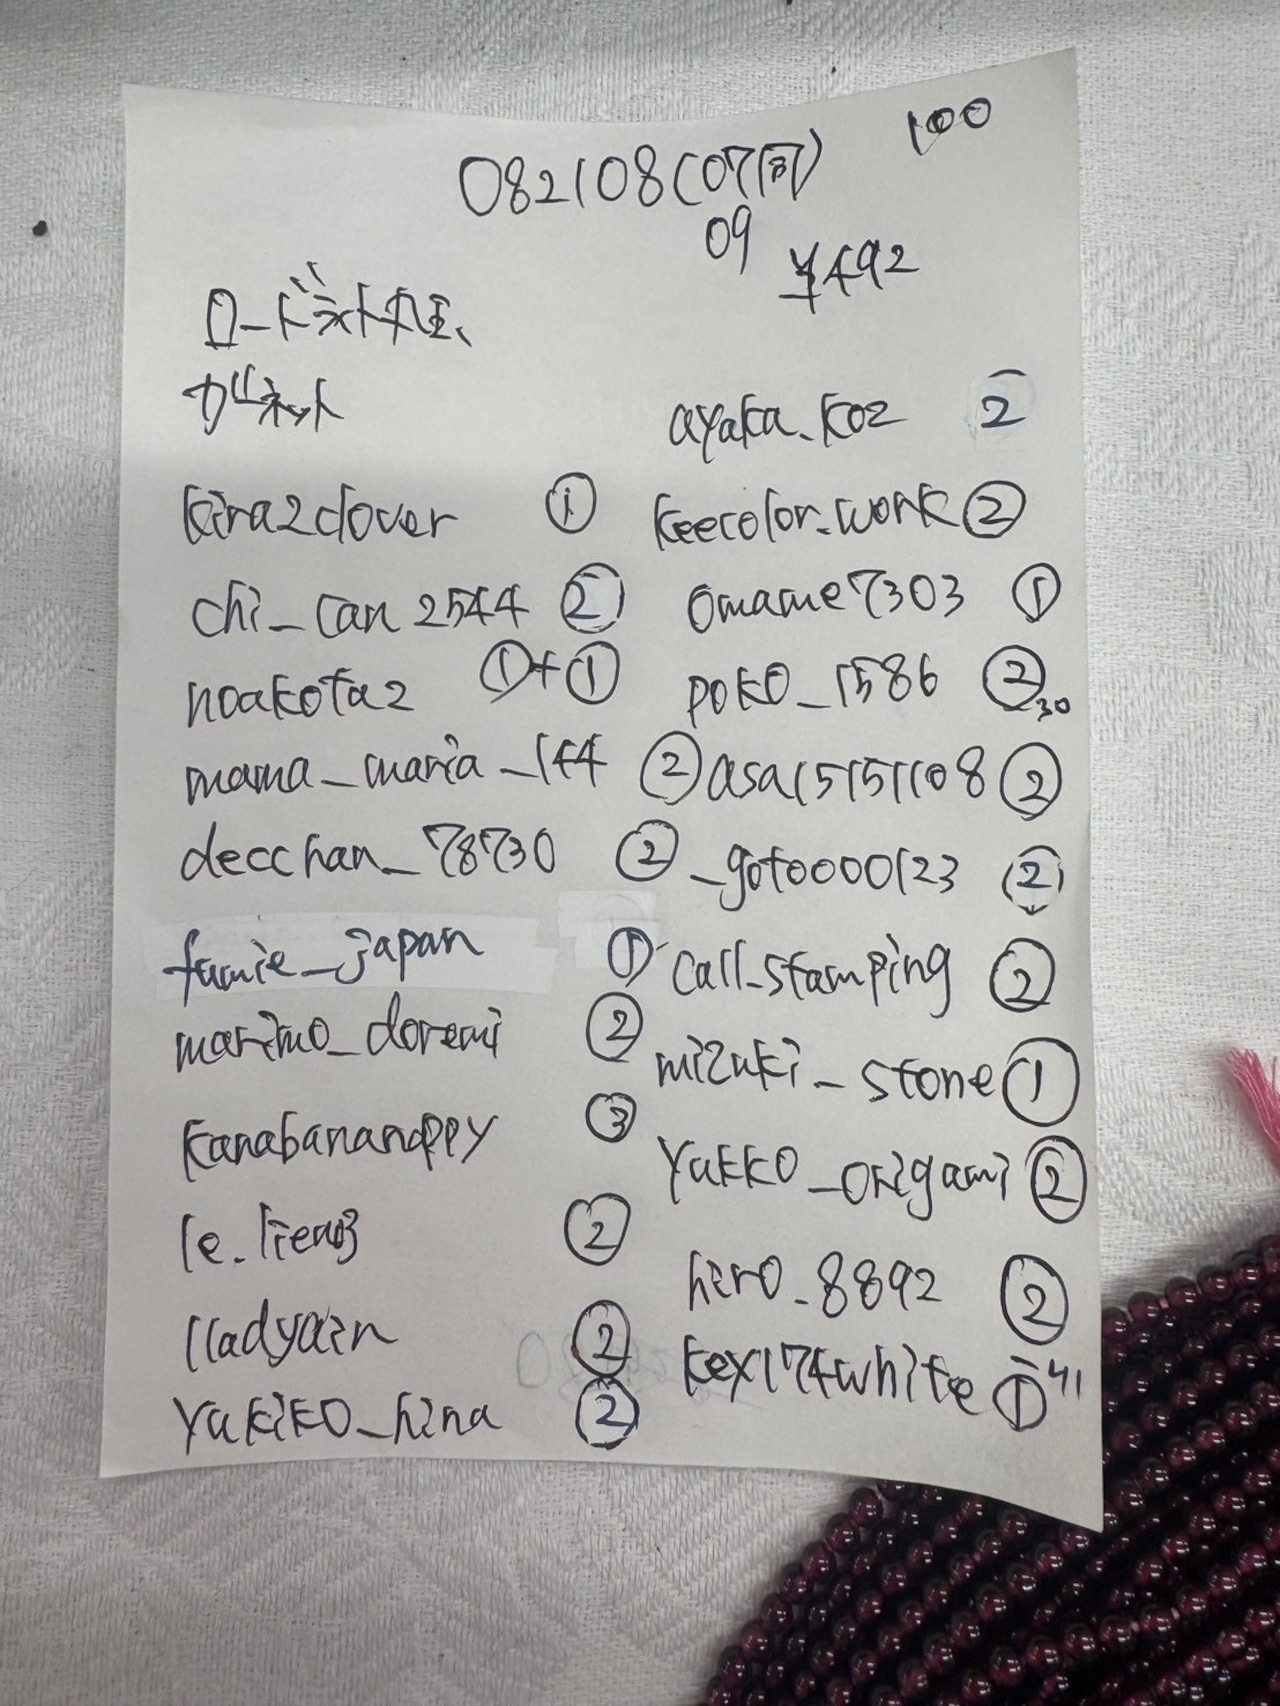 100
082108(07同)
09
¥492
ロードライト
ガーネット
kira2clover ①
chi_can2544 ②
noakota2 ①+①
mama_maria_144 ②
decchan_78730 ②
fumie_japan ①
marimo_doremi ②
kanabananappy ③
le. ②
lladyain ②
yakiko_hina ②
ayaka.koz 2
keecolor.work ②
omame7303 ①
poko_1586 ②
30
asa15151108 ②
_goto000123 ②
call_stamping ②
mizuki_stone ①
yakko_origami ②
hiro_8892 ②
kex174white ① 41